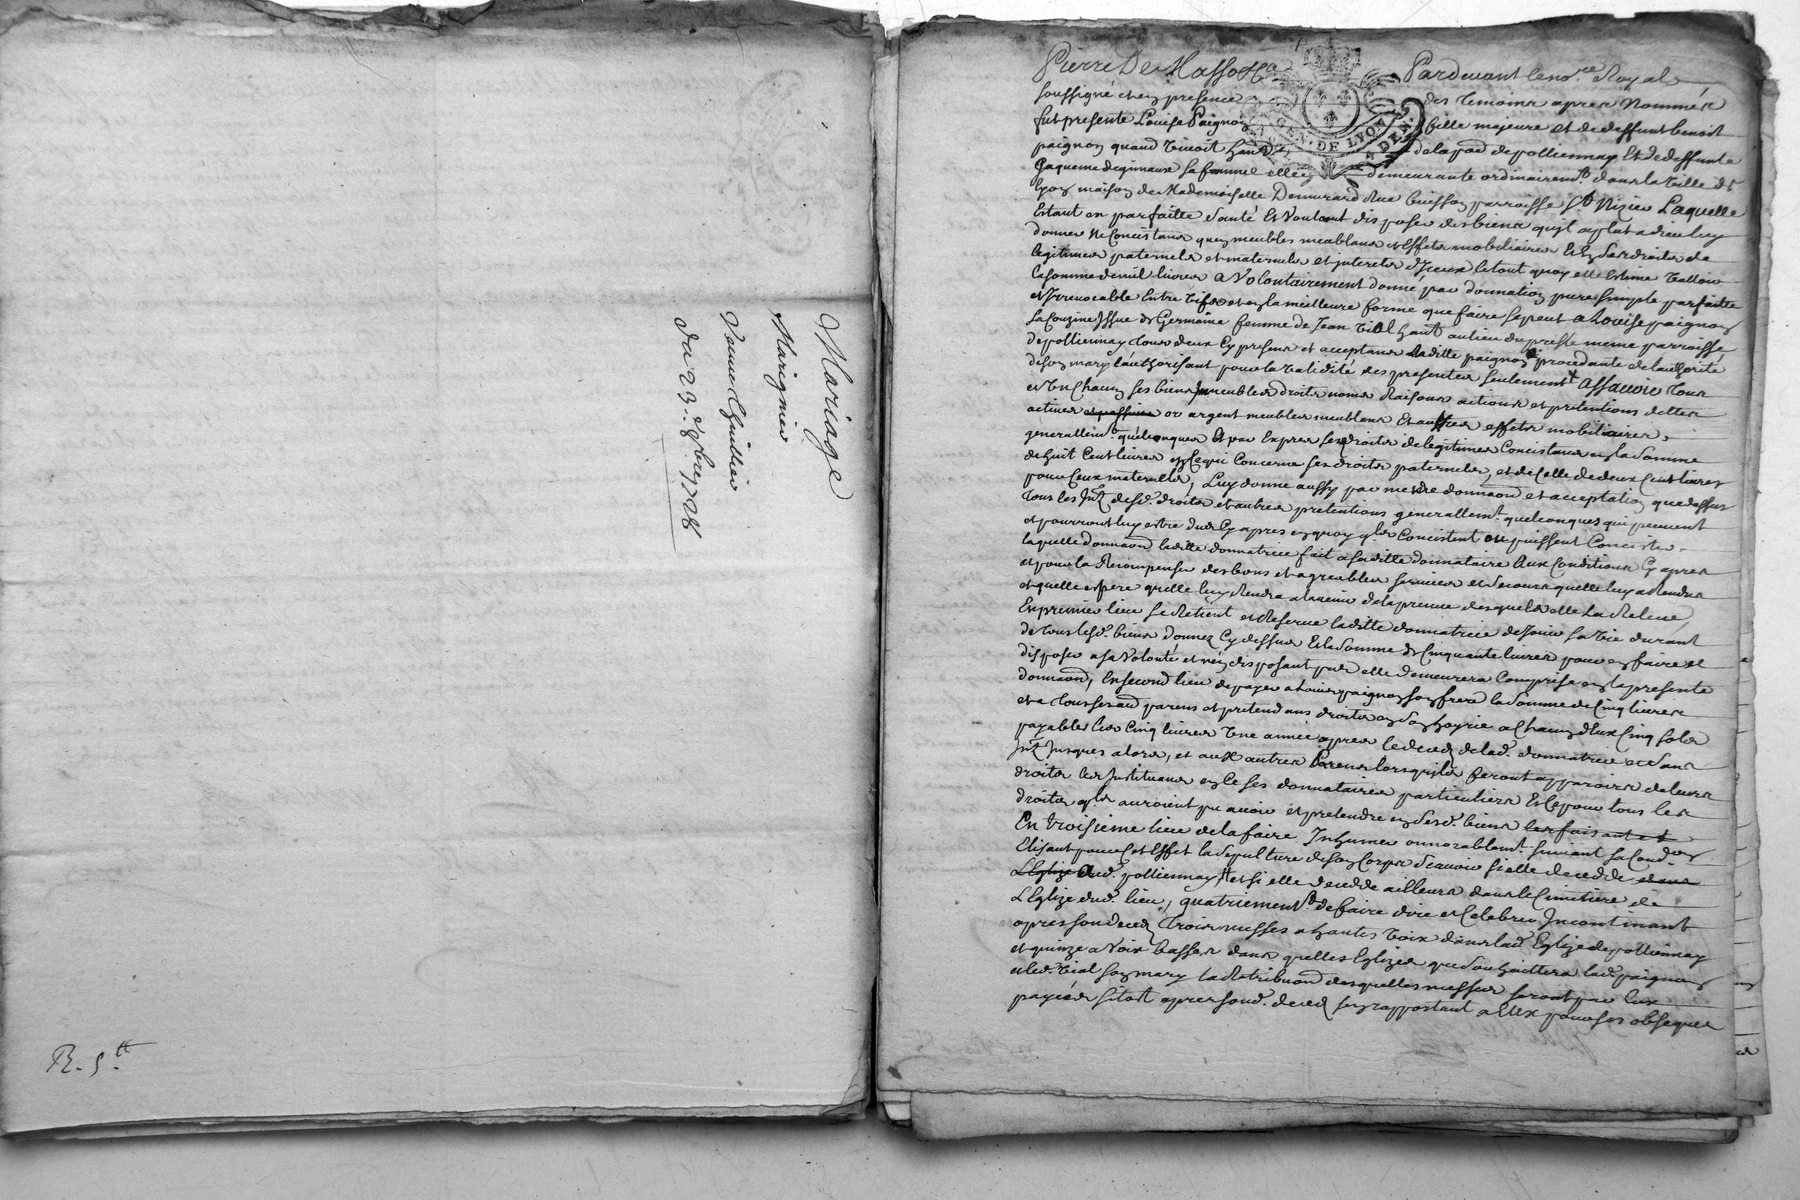 Mariage
Marignier
Veuve Thuillier
du 23.e 9bre 1728
R. 5.tt
Pierre De Masso &a Pardevant le no.re Royal
soussigné et en presence des temoins apres Nommés
fut presente Louise Paignon fille majeure et de deffunt benoit
paignon quand vivoit de la par de polliennay Et de deffunte
Jaqueme sa femme elle demeurante ordinairem.t dans la Ville de
Lyon maison de Mademoiselle Donnurard Rue buisson parroisse S.t Nizier Laquelle
Estant en parfaitte Santé Et Voulant disposer des biens quil a plut a dieu luy
donner Concistans en meubles meublans et Effets mobiliaires Et En ses droits de
legitimes paternels et maternels et interets d'Iceux le tout quoy elle Estime Valloir
la somme de mil livres a Volontairement donné par donnation pure simple parfaitte
et Irrevocable Entre Vifs et en la meilleure forme que faire se peut a Louise paignon
sa Couzine Issue de Germaine femme de Jean Vial hant au lieu du presle meme parroisse
de pollienay tous deux Cy presens et acceptans laditte paignon procedante de lauthorité
de son mary l'authorisant pour la Validité des presentes seulement assavoir tous
et Un Chacun ses biens Immeubles droits noms Raisons actions et pretentions dettes
actives et passives or argent meubles meublans Et autres effets mobiliaires
generallem.t quelconques Et par Expres ses droits de legitimes Concistans en la somme
de huit Cent livres en Ce qui Concerne ses droits paternels, et de Celle de deux Cent livres
pour Ceux maternels, Luy donne aussy par meme donnaon et acceptation que dessus
tous les Int. desd. droits et autres pretentions generallem.t quelconques qui peuvent
et pourront luy estre dus Cy apres en quoy qls Concistent ou puissent Concister
laquelle donnaon laditte donnatrice fait a saditte donnataire Aux Conditions Cy apres
et pour la Recompenser des bons et agreables services et secours quelle luy a Rendus
et quelle espere quelle luy Rendra a lavenir de la preuve desquels elle La Releve,
En premier lieu se Retient et Reserve laditte donnatrice de Jouir sa Vie durant
de tous lesd. biens donnez Cy dessus Et la Somme de Cinquante livres pour en faire et
disposer a sa Volonté et n'en disposant pas elle demeurera Comprise en la presente
donnaon, En second lieu de payer a Louis paignon son frere la somme de Cinq livres
et a tous ses aud parens et pretendans droits en son hoyrie a Chacun d'Eux Cinq sols
payables les Cinq livres Une année apres le deced de lad. donnatrice et sans
Int. Jusques alors, et aux autres Parens lorsquils feront apparoir de leurs
droits les Instituans en Ce ses donnataires particuliers Et Ce pour tous les
droits qls auroient pu avoir et pretendre en sesd. biens les faisant et
En troisieme lieu de la faire Inhumer onnorablem.t suivant sa Cond.on
Elisant pour Cet Effet la sepulture de son Corps Scavoir si elle decedde dans
L'Eglize dud. pollienay et si elle decedde ailleurs dans le Cimitiere de
L'Eglize dud. lieu, quatriement de faire dire et Celebrer Incontinant
apres son deced trois messes a hautes Voix dans lad. Eglize de pollienay
et quinze a Voix basses dans quelles Eglizes que souhaittera lad. paignon
et led. Vial son mary la Retribuon desquelles messes seront par Eux
payées sitost apres sond. deced sen rapportant a Eux pour ses obseques